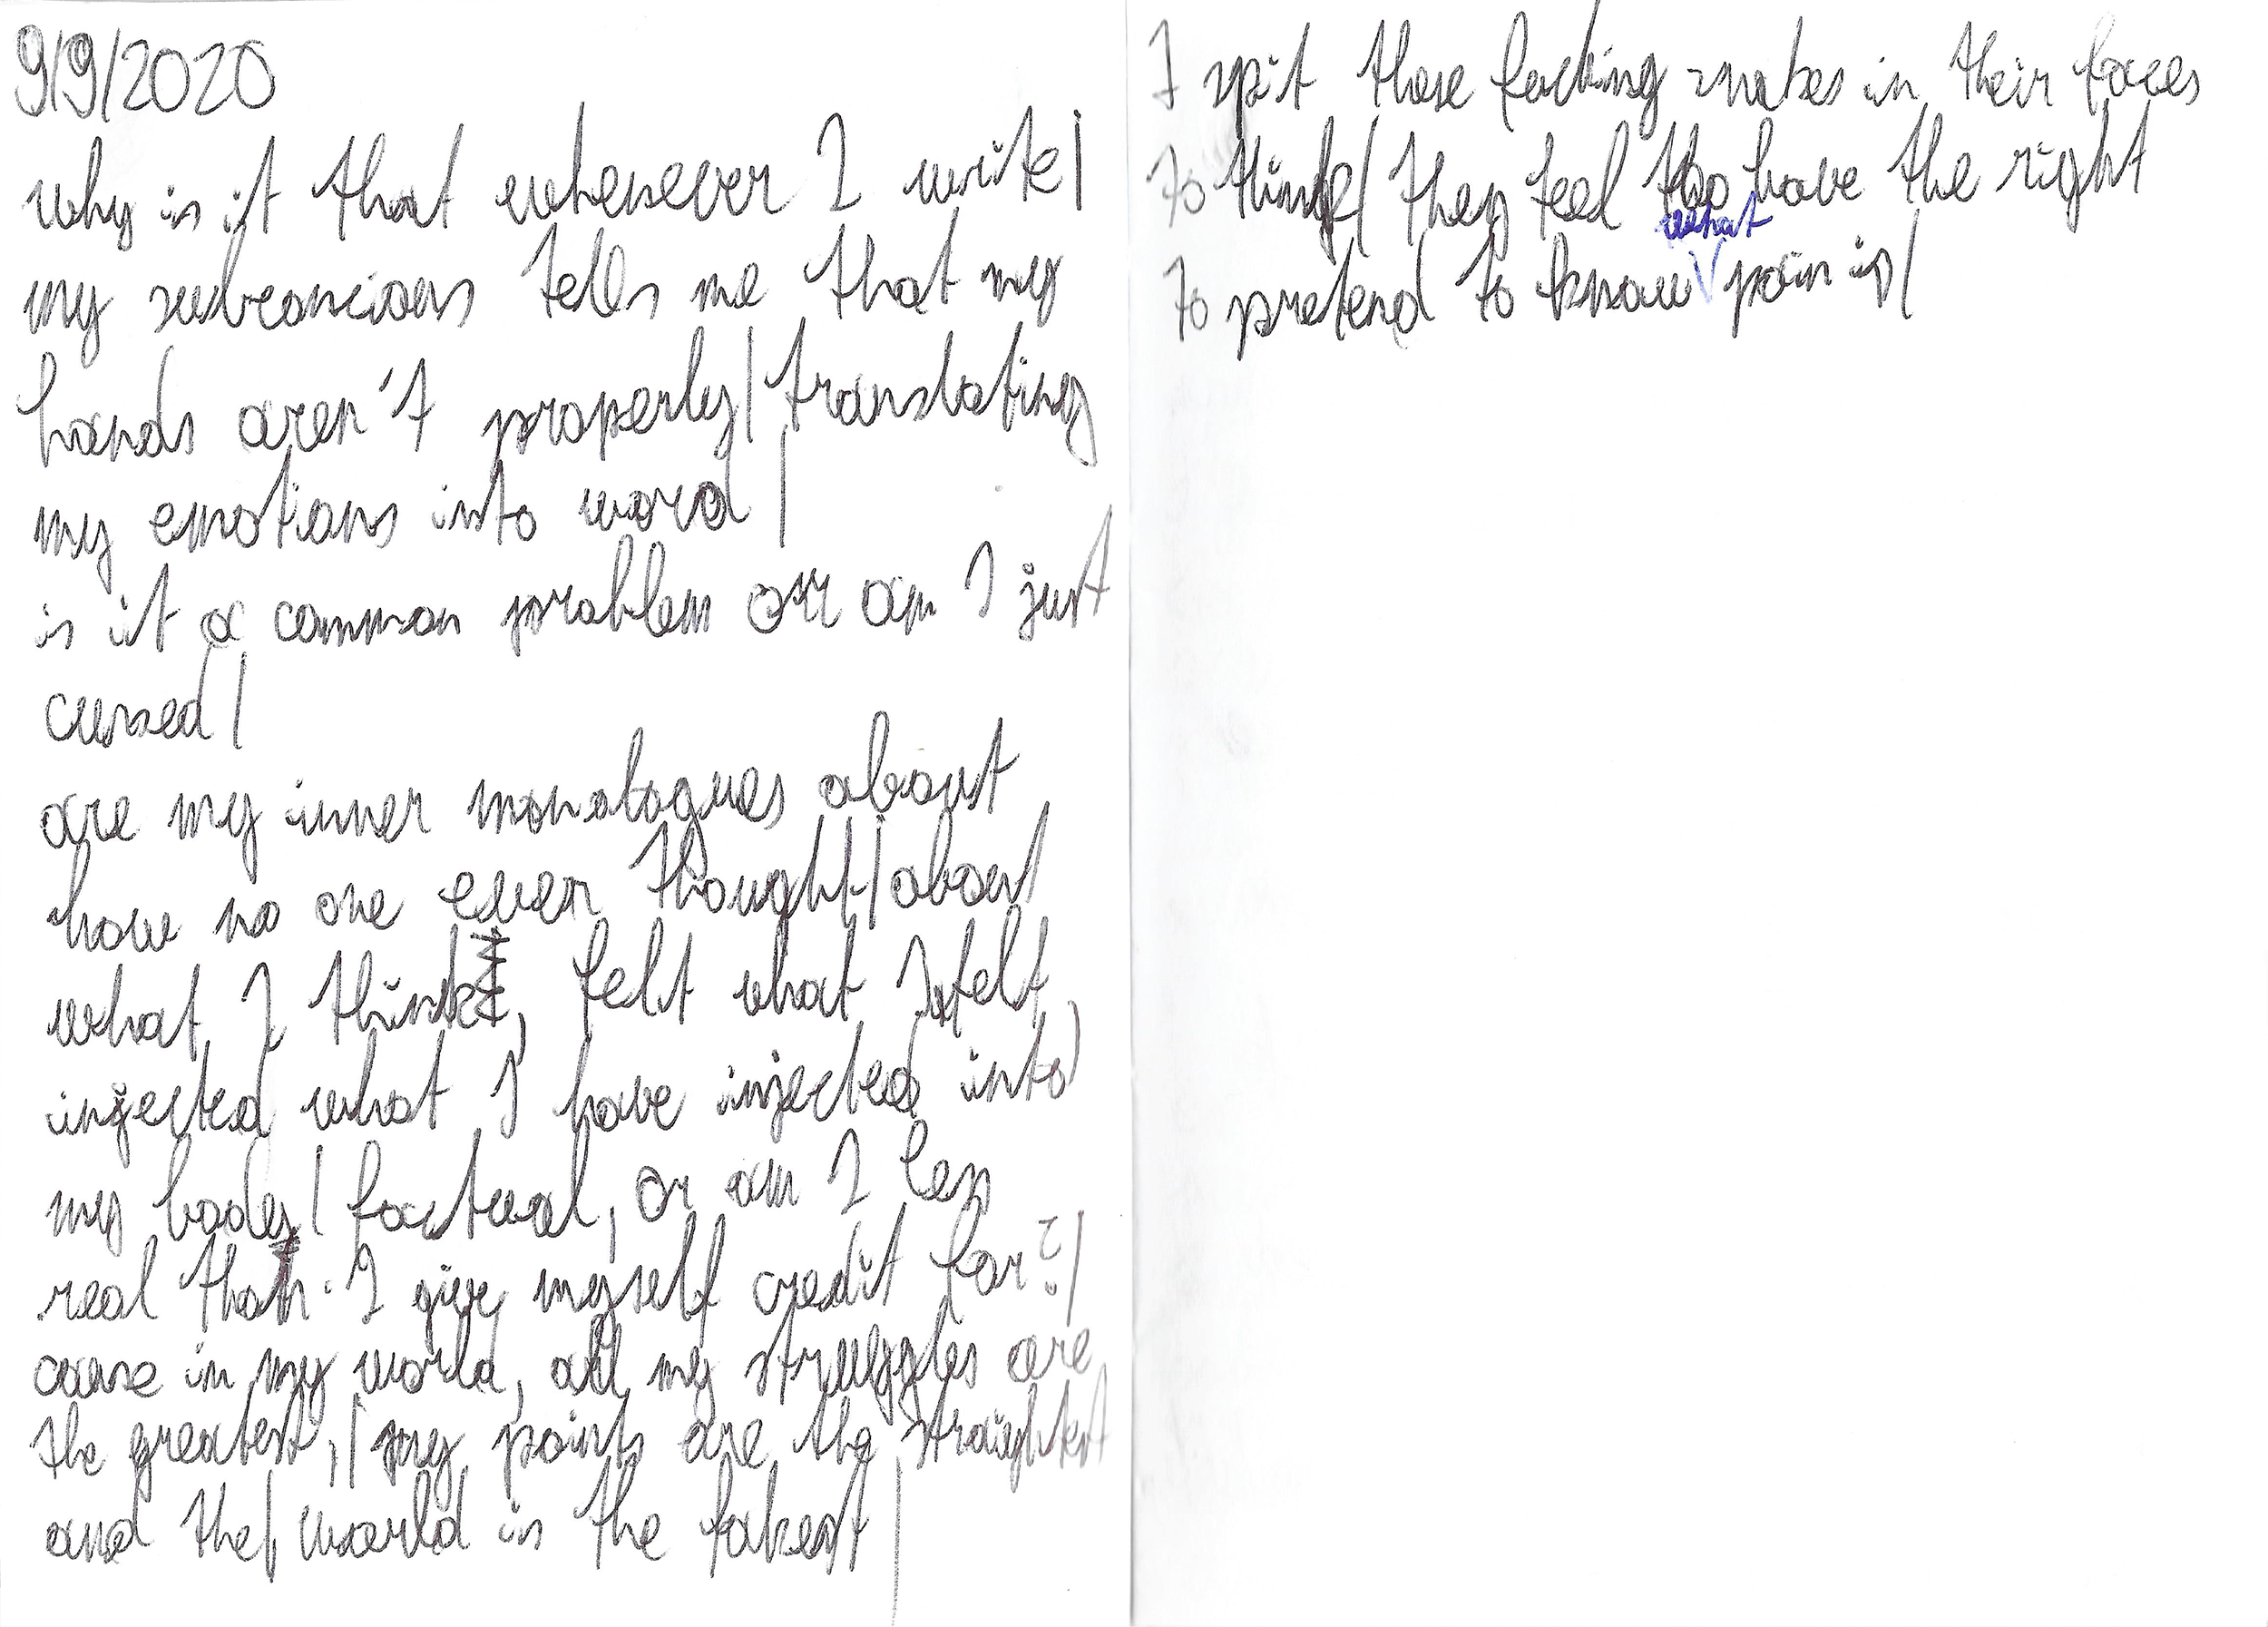 9/9/2020
why is it that whenever I write|
my subconcious tells me that my
hands aren't properly| translating
my emotions into word|
is it a common problem or am I just
cursed|
are my inner monologues about
how no one ever thought| about
what I think, felt what I felt
injected what I have injected into
my body| factual, or am I less
real than I give myself credit for?|
cause in my world, all my struggles are
the greatest,| my points are the straightest
and the| world is the fakest|
I spit those fucking snakes in their faces
to think| they feel to have the right
to pretend to know what pain is|